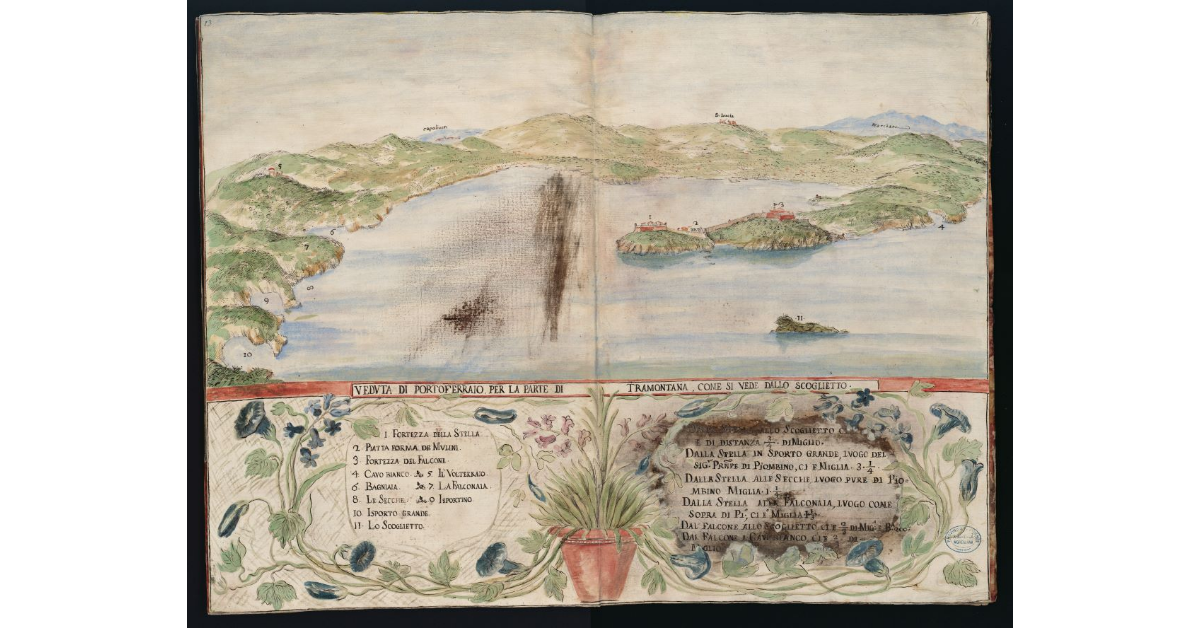 S. Lucia
VEDVTA DI PORTOFERRAIO PER LA PARTE DI TRAMONTANA, COME SI VEDE DALLO SCOGLIETTO.
1 FORTEZZA DELLA STELLA
2 PIATTA FORMA DE MVLINI.
3 FORTEZZA DEL FALCONE.
4 CAVO BIANCO. 5 IL VOLTERRAIO.
6 BAGNIAIA. 7 LA FALCONAIA.
8 LE SECCHE. 9 ISPORTINO
10 ISPORTO GRANDE.
11 LO SCOGLIETTO.
ALLO SCOGLIETTO
DI DISTANZA DI MIGLIO.
DALLA STELLA IN SPORTO GRANDE, LVOGO DEL
SIG. PRÑPE DI PIOMBINO, CI E MIGLIA 3 1/4
DALLA STELLA ALLE SECCHE LVOGO PVRE DI PIO
MBINO MIGLIA 1
DALLA STELLA ALLA FALCONAIA, LVOGO COME
SOPRA DI PI. CI E MIGLIA
DAL FALCONE ALLO SCOGLIETTO CI E DI MIG.
DAL FALCONE A CAVO BIANCO, CI E